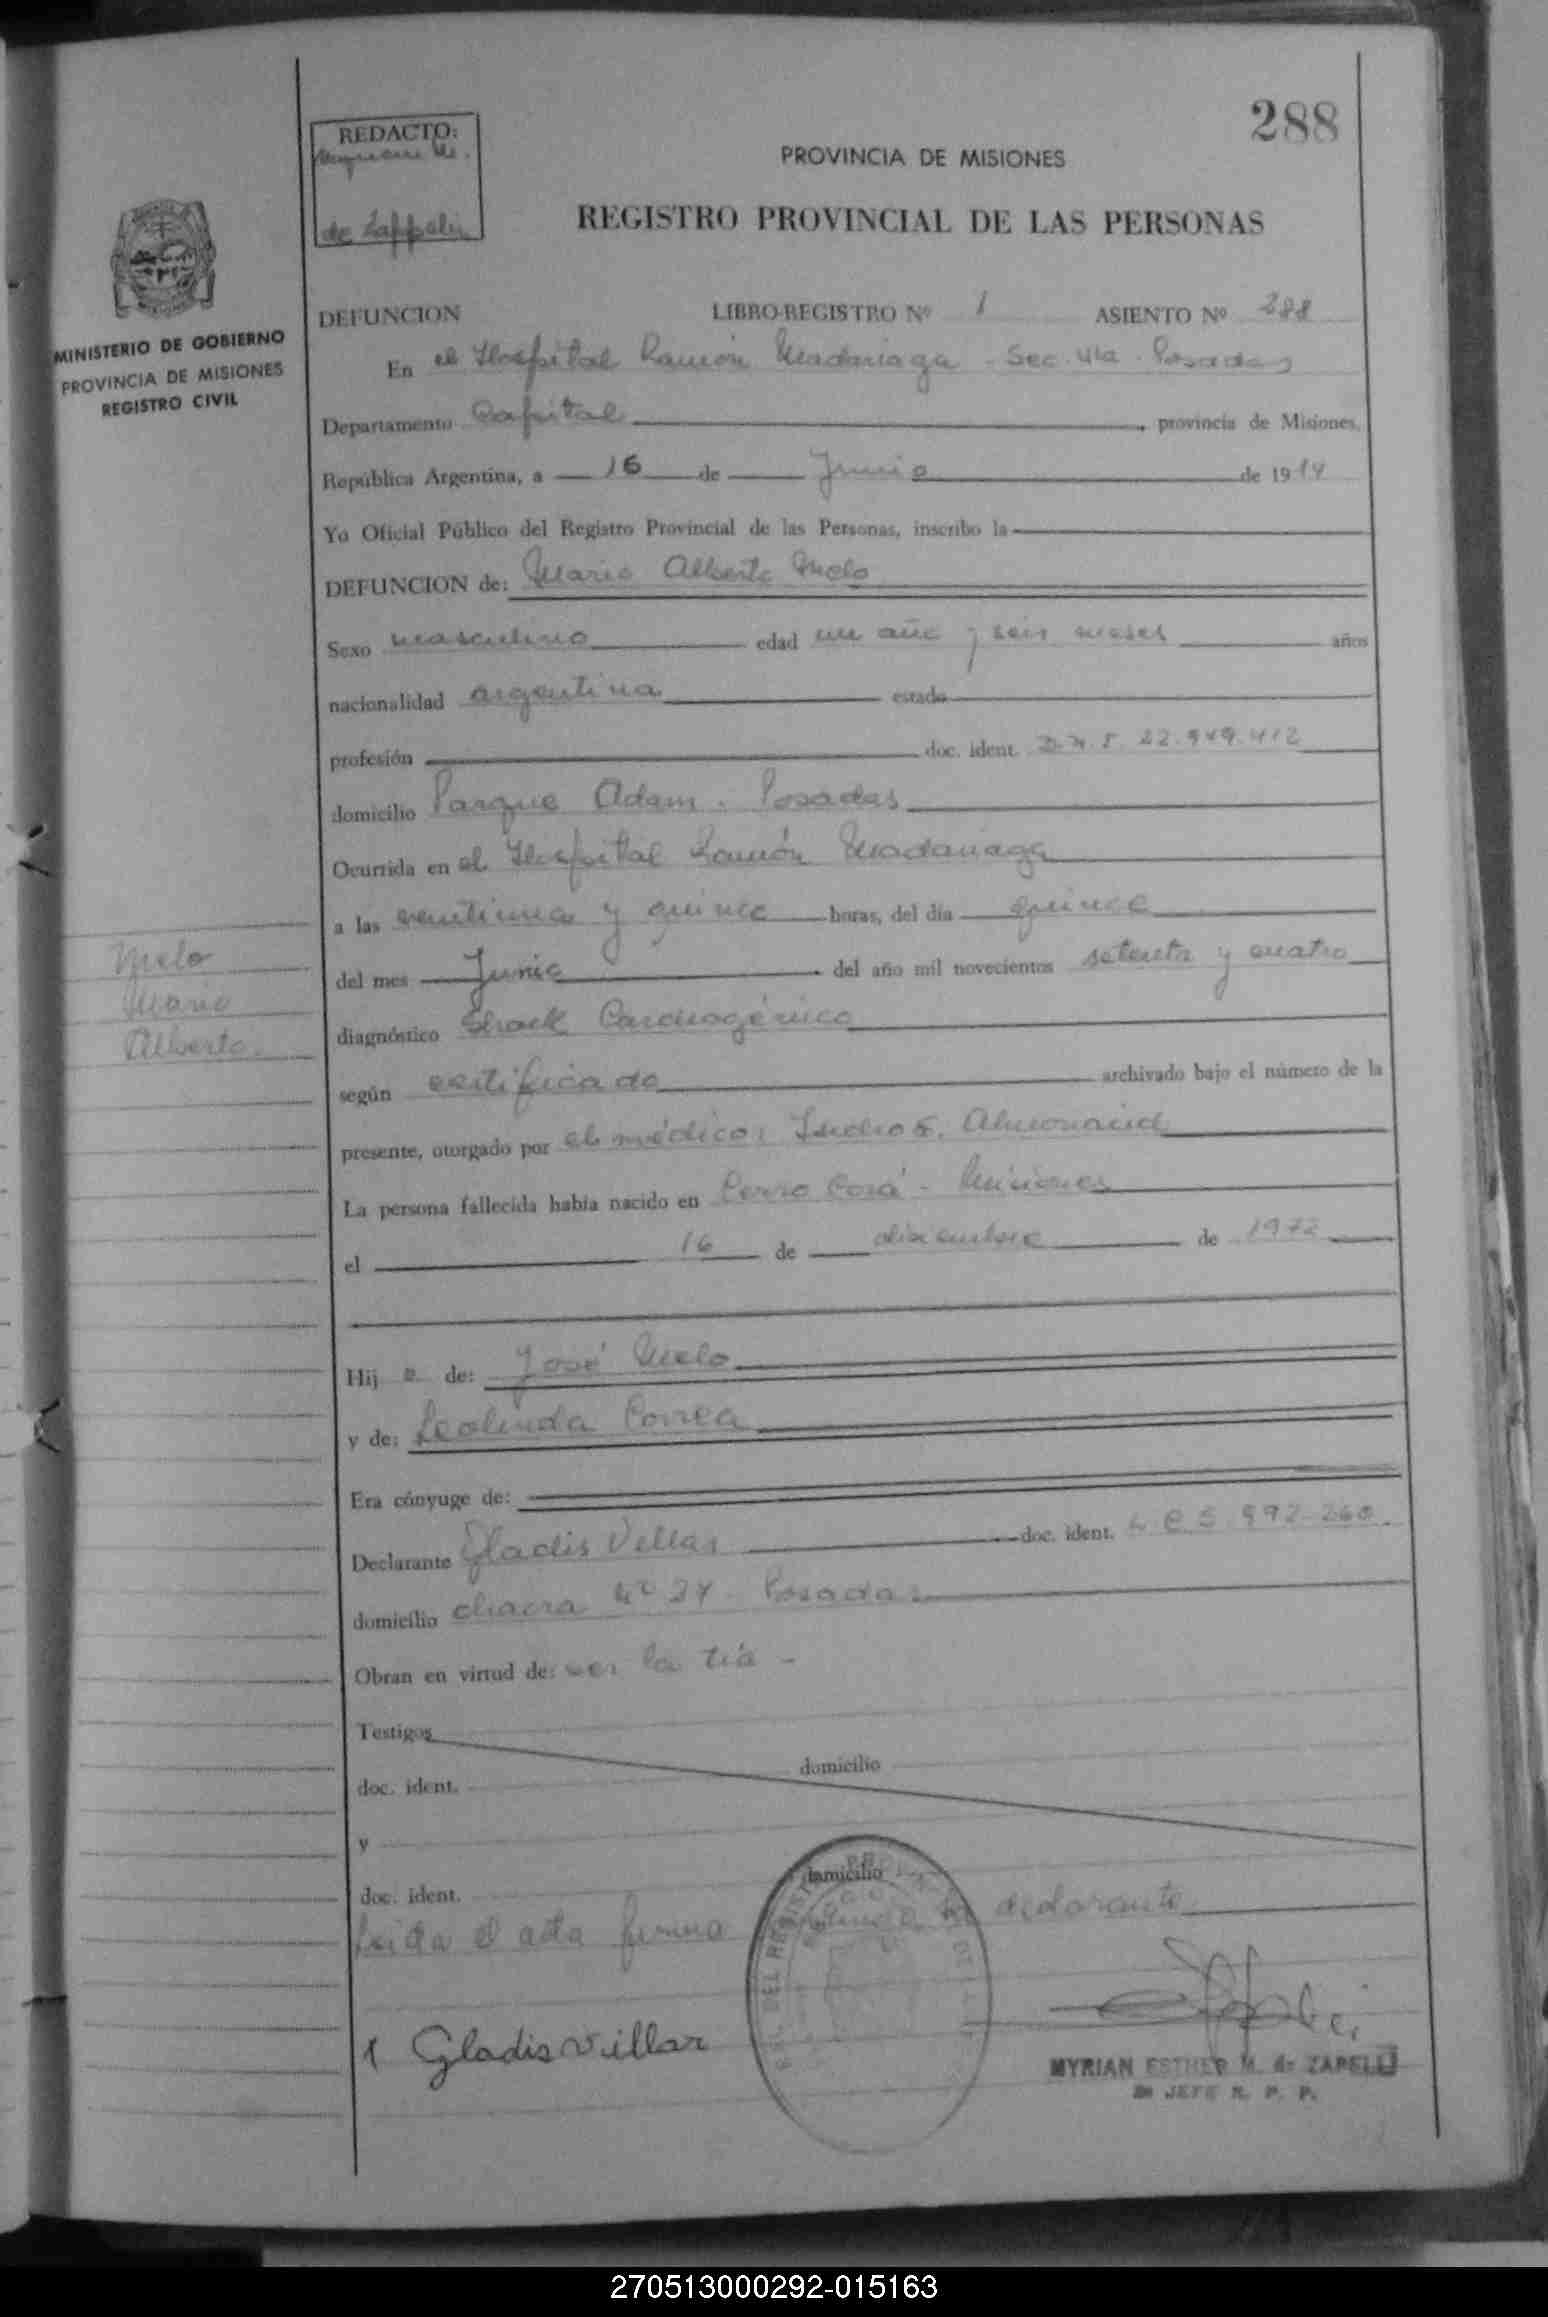 288
REDACTO:
de Zappelli
PROVINCIA DE MISIONES
REGISTRO PROVINCIAL DE LAS PERSONAS
MINISTERIO DE GOBIERNO
PROVINCIA DE MISIONES
REGISTRO CIVIL
DEFUNCION LIBRO-REGISTRO Nº 1 ASIENTO Nº 288
En el Hospital Ramón Madariaga - Sec. 4ta. Posadas
Departamento Capital, provincia de Misiones,
República Argentina, a 16 de Junio de 1974
Yo Oficial Público del Registro Provincial de las Personas, inscribo la
DEFUNCION de: Mario Alberto Melo
Sexo masculino edad un año y seis meses años
nacionalidad argentina estado
profesión doc. ident. D.N.I. 22.949.412
domicilio Parque Adam. Posadas
Ocurrida en el Hospital Ramón Madariaga
a las veintiuna y quince horas, del día quince
del mes Junio del año mil novecientos setenta y cuatro
Melo
Mario
Alberto.
diagnóstico Shock Cardiogénico
según certificado archivado bajo el número de la
presente, otorgado por el médico:
La persona fallecida había nacido en Cerro Corá - Misiones
el 16 de diciembre de 1972
Hij o de: José Melo
y de: Leolinda Correa
Era cónyuge de:
Declarante Gladis Villar doc. ident. L.C 5.992.260.
domicilio chacra Nº 34 - Posadas
Obran en virtud de: ser la tía -
Testigos
doc. ident. domicilio
y
doc. ident. domicilio
Leida el acta firma la declarante
Gladis Villar
MYRIAN ESTHER M. de ZAPELLI
JEFE R. P. P.
270513000292-015163